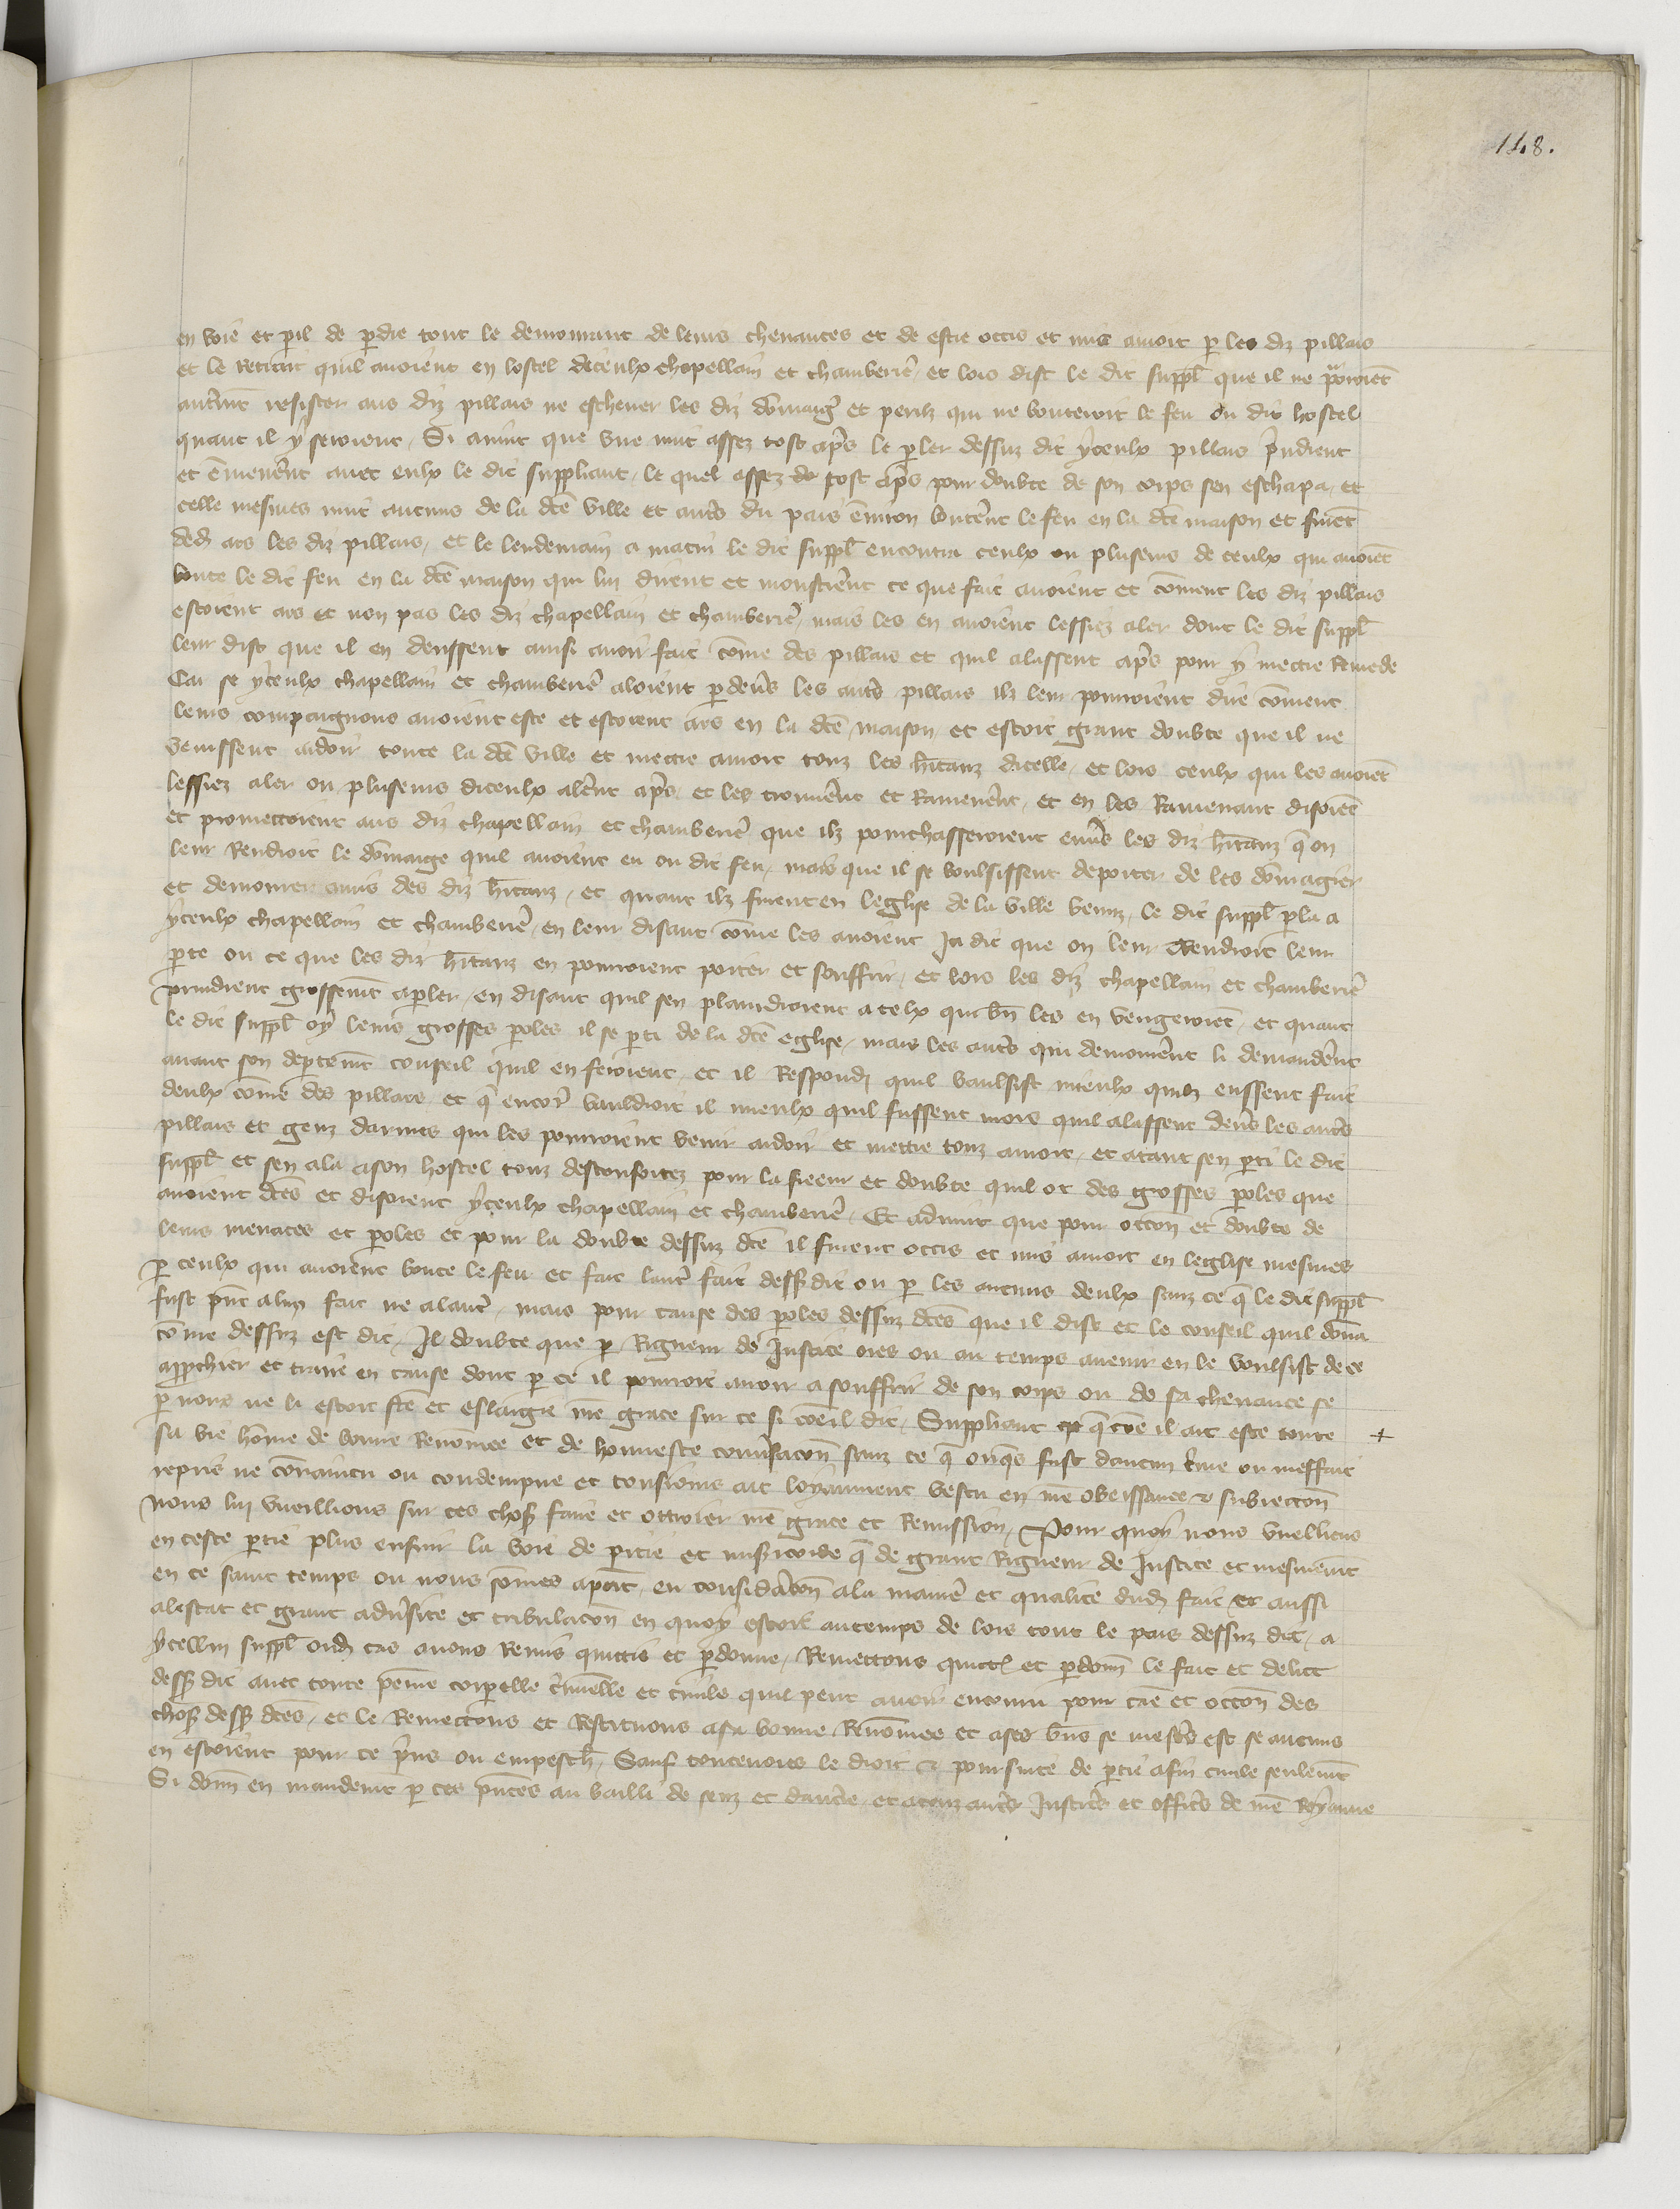 148.
en voie et peril de perdre tout le demourant de leurs chevances et de estre occis et mis amort par les diz pillars
et le recitat quil avoient en lostel diceulx chapellain et chamberiere, et lors dist le dit suppl que il ne pourroient
autrement resister aus diz pillars ne eschever les diz domaiges et perilz qui ne bouteroit le feu ou dit hostel
quant il y seroient, Si avint que une nuit assez tost apres le parler dessuz dit yceulx pillars prindrent
et emmenerent avec eulx le dit suppliant, le quel assez tost apres pour doubte de son corps sen eschapa, et
celle mesmes nuit aucuns de la dcte ville et autres du pais environ bouterent le feu en la dcte maison et furent
dedens ars les diz pillars, et le lendemain a matin le dit suppl encontra ceulx ou pluseurs de ceulx qui avoient
boute le dit feu en la dcte maison qui lui dirent et monstrerent ce que fait avoient et coment les diz pillars
estoient ars et non pas les diz chapellain et chamberiere, mais les en avoient lessiez aler dont le dit suppl
leur dist que il en deussent ainsi avoir fait come des pillars et quil alassent apres pour y mectre remede
Car se yceulx chapellain et chamberiere aloient par devers les autres pillars ilz leur pourroient dire coment
leurs compaignons avoient este et estoient ars en la dcte maison, et estoit grant doubte que il ne
venissent ardoir toute la dcte ville et mectre amort touz les habitanz dicelle, et lors ceulx qui les avoient
lessiez aler ou pluseurs diceulx alerent apres et les trouverent et Ramenerent, et en les Ramenant disoient
et promettoient aus diz chapellain et chamberiere que ilz pourchasseroient envers les diz habitanz que on
leur Rendroit le domaige quil avoient eu ou dit feu, mais que il se voulsissent deporter de les domagier
et demourer amis des diz habitanz, et quant ilz furent en leglise de la ville venuz, le dit suppl parla a
yceulx chapellain et chamberiere, en leur disant come les avoient Ja dit que on leur Rendroit leur
perte ou ce que les diz habitanz en pourroient porter et souffrir, et lors les diz chapellain et chamberiere
prindrent grossement aparler, en disant quil sen plaindroient a telx qui bien les en vengeroient, et quant
le dit suppl oy leurs grosses paroles il se parti de la dcte eglise, mais les autres qui demourerent li demanderent
avant son departement conseil quil en feroient, et il Respondi quil vaulsist mieulx quilz eussent fait
deulx come des pillars et que encore vauldroit il mieulx quil fussent mors quil alassent devers les autres
pillars et genz darmes qui les pourroient venir ardoir et mettre touz amort, et atant sen parti le dit
suppl et sen ala ason hostel touz desconfortez pour la freeur et doubte quil ot des grosses paroles que
avoient dctes et disoient yceulx chapellain et chamberiere, Et advint que pour occon et doubte de
leurs menaces et paroles et pour la doubte dessuz dcte il furent occis et mis amort en leglise mesmes
par ceulx qui avoient boute le feu et fait lautre fait dessus dit ou par les aucuns deulx sanz ce que le dit suppl
fust present alun fait ne alautre, mais pour cause des paroles dessuz dctes que il dist et le conseil quil dona
come dessuz est dit, Il doubte que par Rigueur de Justice ores ou au temps avenir en le voulsist de ce
approchier et traire en cause dont par ce il pourroit avoir a souffrir de son corps ou de sa chevance se
par nous ne li estoit fte et eslargie nre grace sur ce si coe il dit, Suppliant que coe il ait este toute +
sa vie home de bonne Renomee et de honneste conversacon sanz ce que onques fust daucun crime ou meffait
repris ne convaincu ou condempne et tousiours ait loyaument vescu en nre obeissance & subiection
nous lui vueillions sur ces choses faire et ottroier nre grace et Remission, Pour quoy nous vuelliens
en ceste partie plus ensuir la voie de pitie et misericorde que de grant Rigueur de Justice et mesmement
en ce saint temps ou nous somes apnt, eu consideracon ala maniere et qualite dudit fait et aussi
alestat et grant adversite et tribulacon en quoy estoit autemps de lors tout le pais dessuz dit, a
ycellui suppl oudit cas avons Remis quittie et pardonne, Remettons quictons et pardonons le fait et delict
dessus dit avec toute peine corporelle criminelle et civile quil peut avoir encouru pour cause et occon des
choses dessus dctes, et le Remectons et Restituons asa bonne Renomee et ases biens se mestier est se aucuns
en estoient pour ce prins ou empeschez, Sauf toutevoies le droit & poursuite de partie afin civile seulement
Si donn en mandement par ces presentes au bailli de senz et daucerre et atouz autres Justiciers et officiers de nre Royaume